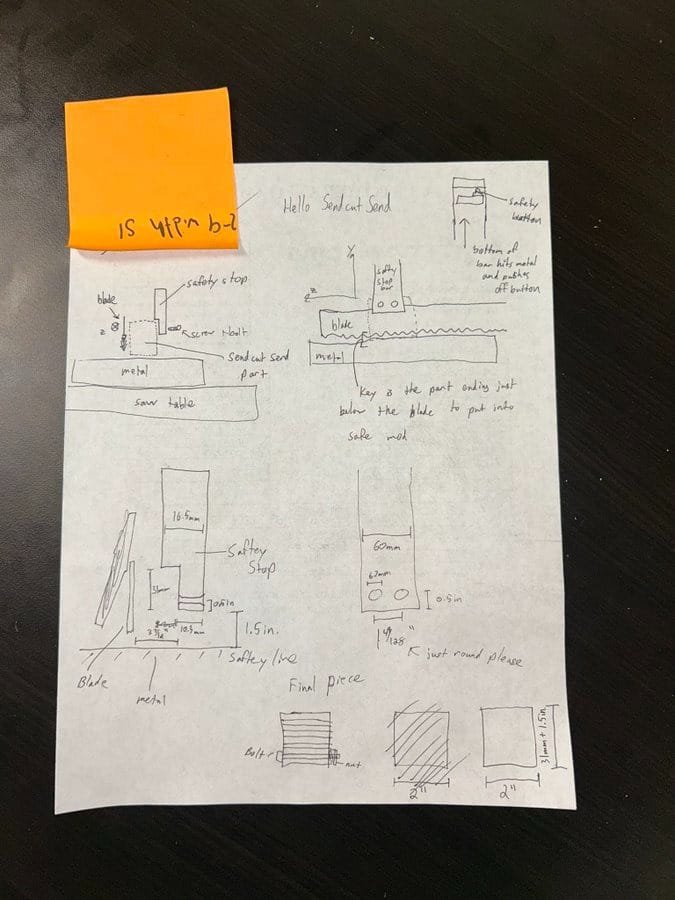 Hello Sendcut Send
safety
button
bottom of
bar hits metal
and pushes
off button
safety stop
blade
z
screw + bolt
Sendcut send
part
metal
saw table
Y
z
safty
stop
bar
blade
metal
Key is the part ending just
below the blade to put into
safe mod
16.5mm
Saftey
Stop
31mm
0.5in
10.5mm
1.5in.
Saftey line
Blade
metal
60mm
0.5in
just round please
Final piece
Bolt
nut
2"
2"
31mm + 1.5in